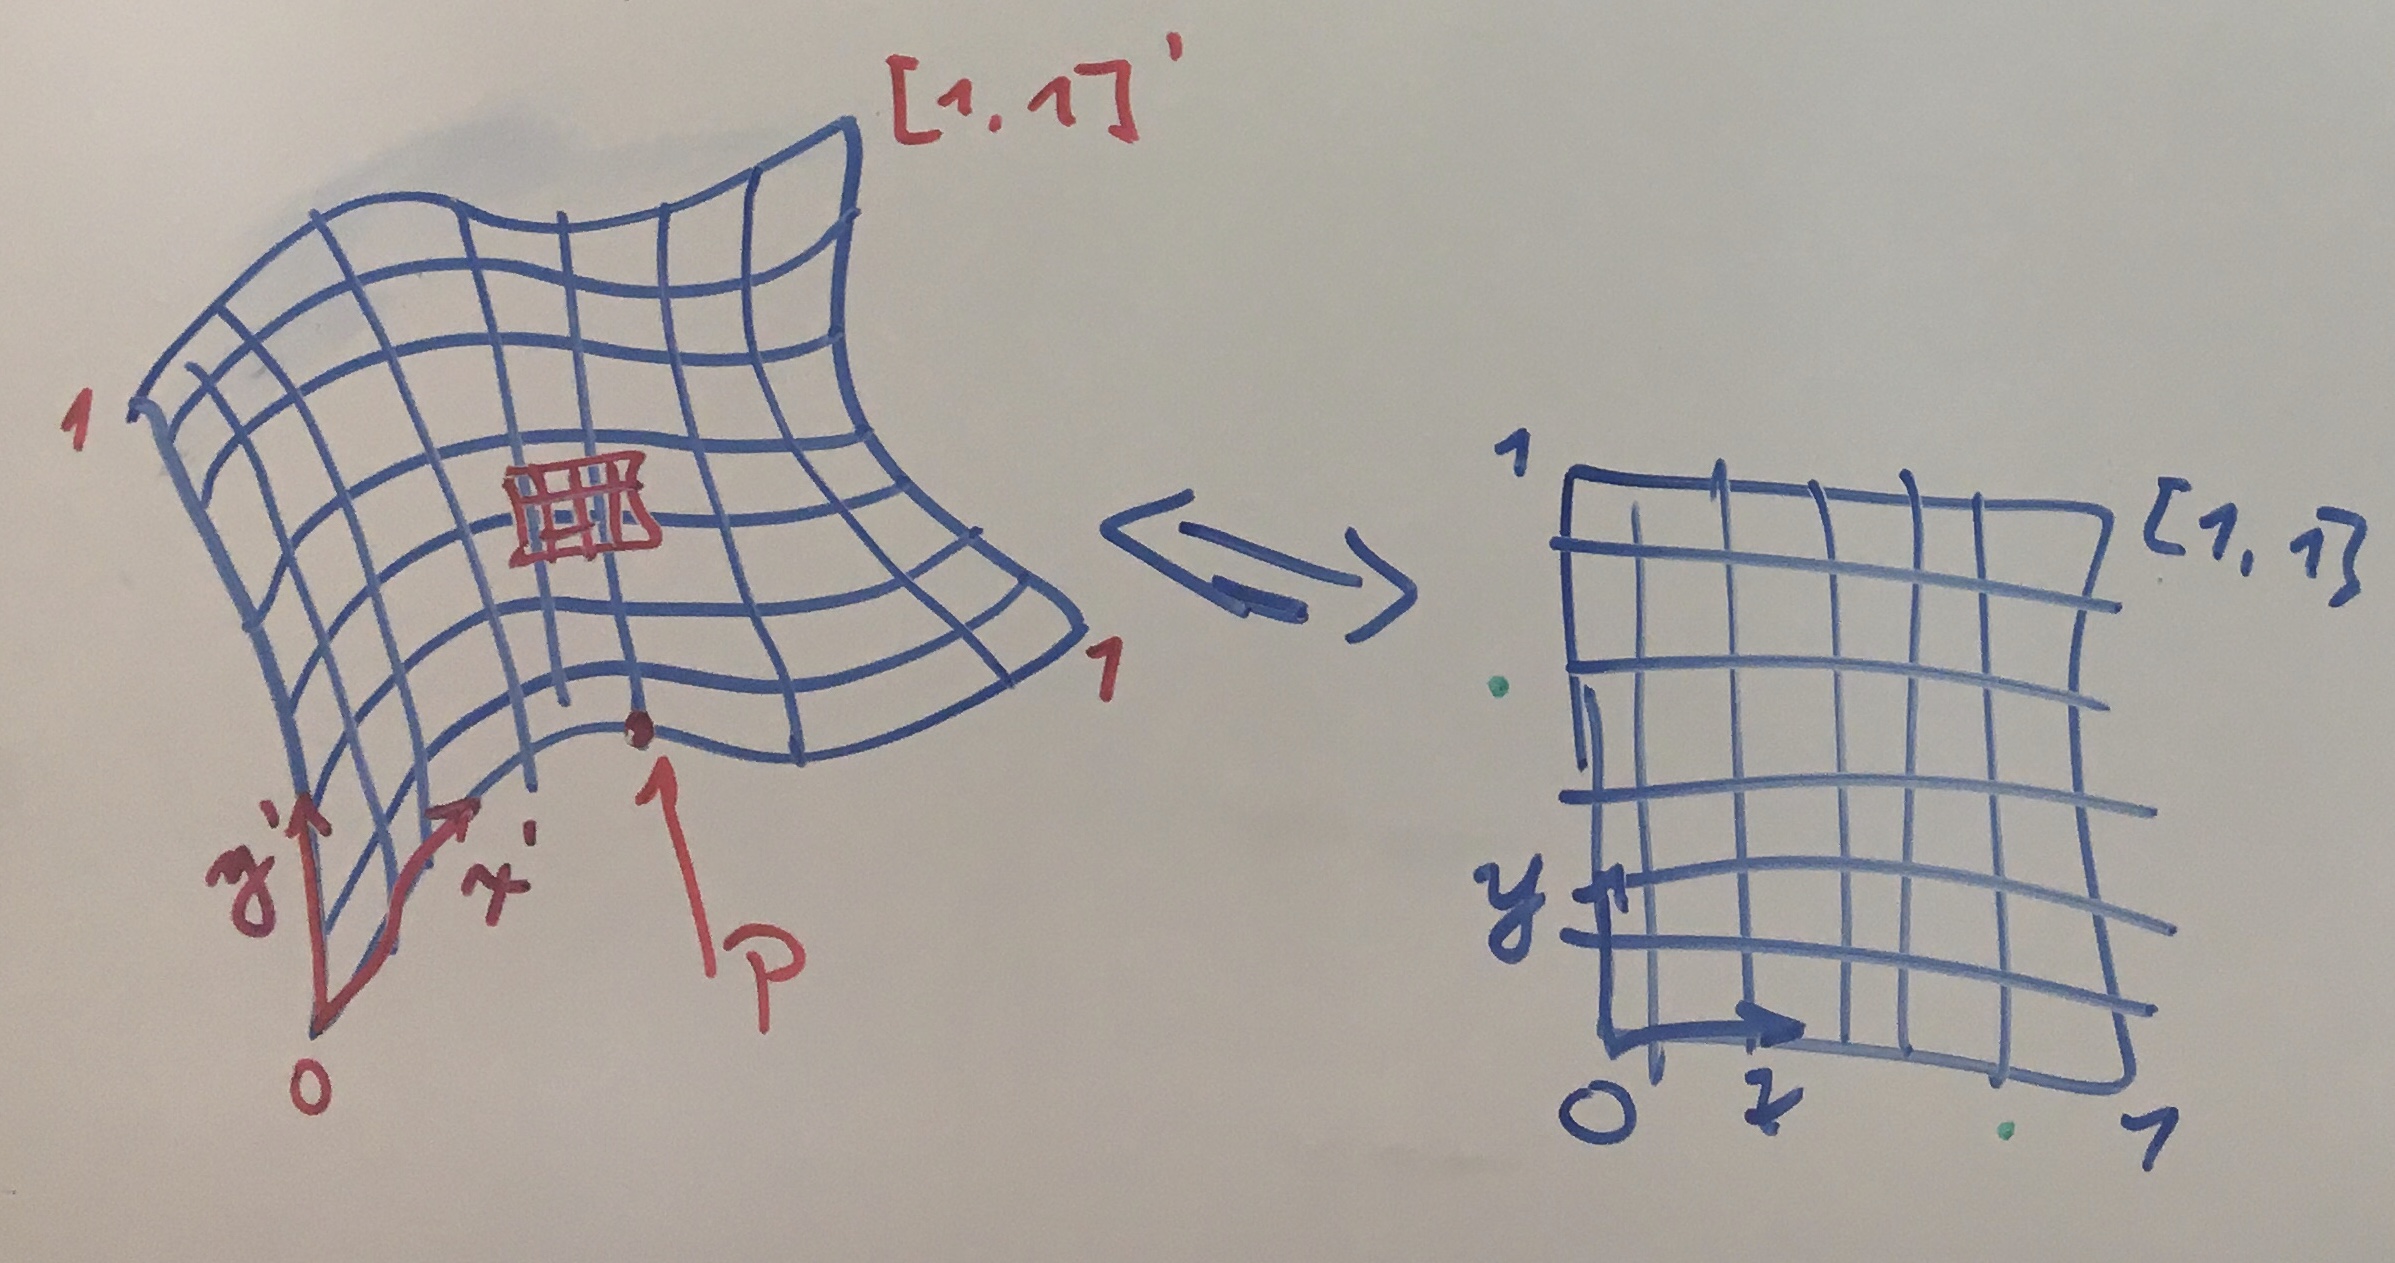 [1,1]'
1
1
y'
x'
P
0
1
[1,1]
y
0
1